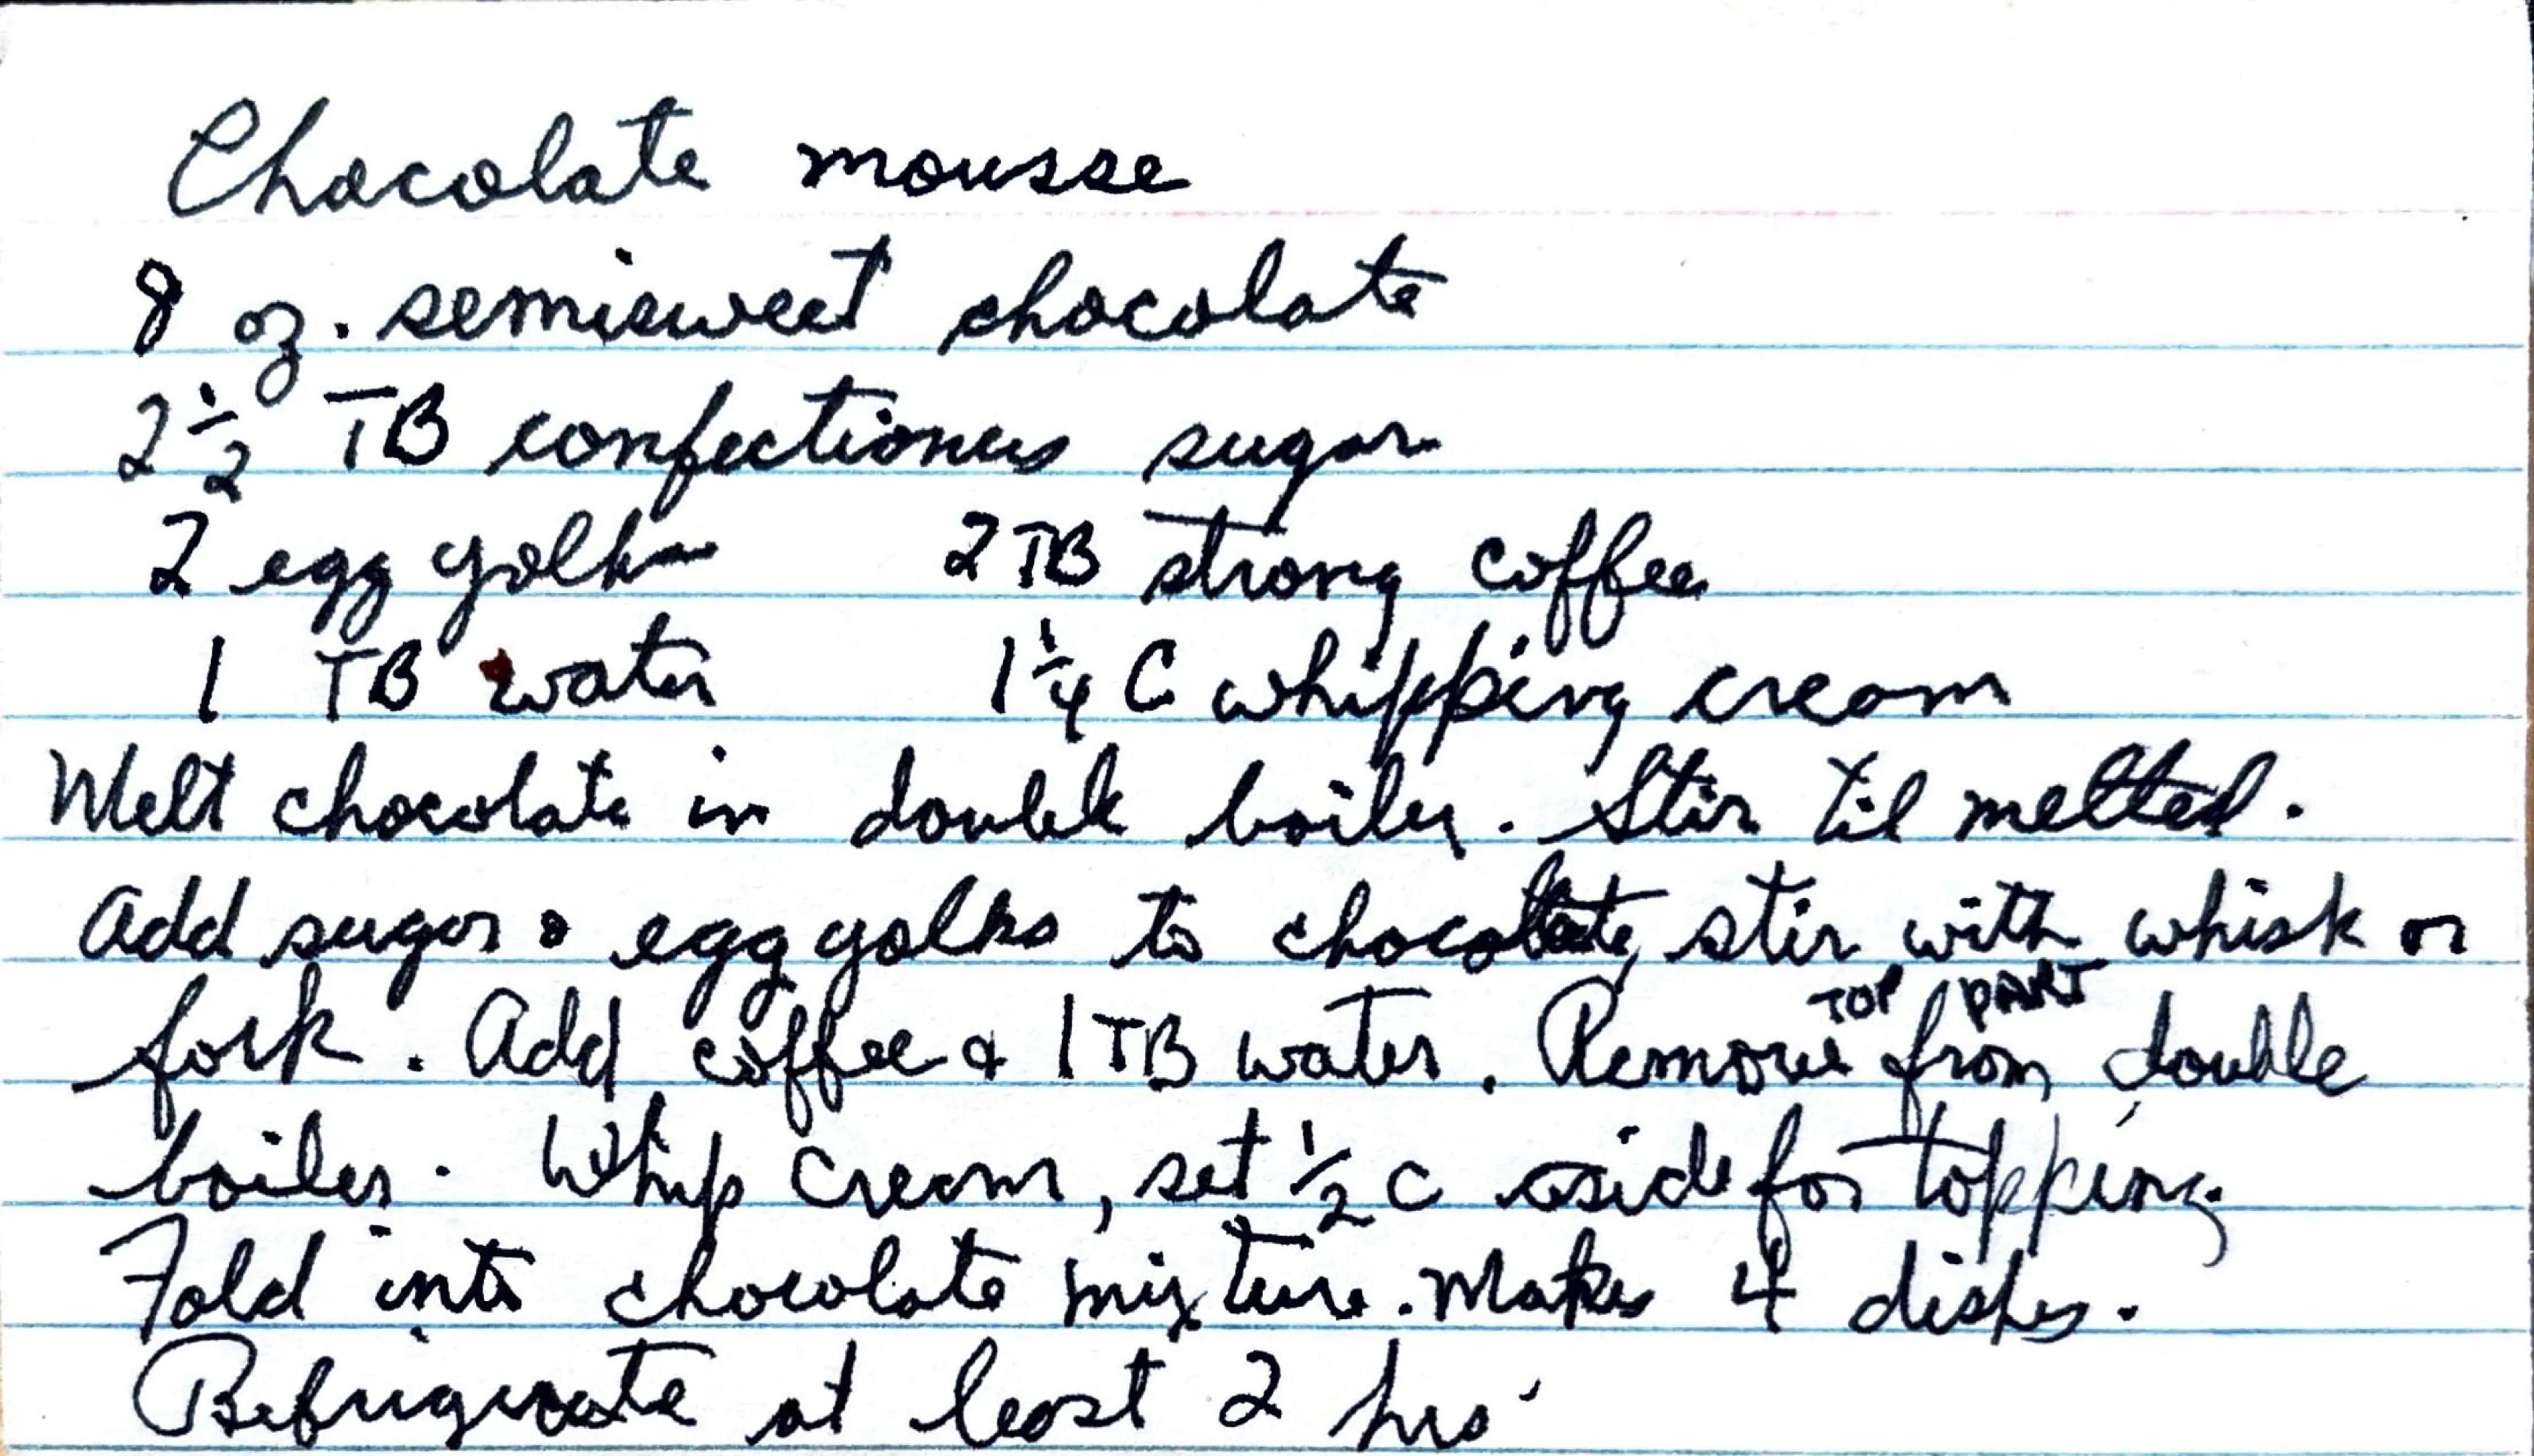 Chocolate mousse
8 oz. semisweet chocolate
2 1/2 TB confectioners sugar
2 egg yolks 2 TB strong coffee
1 TB water 1 1/4 C whipping cream
Melt chocolate in double boiler. Stir til melted.
Add sugar & egg yolks to chocolate, stir with whisk or
fork. Add coffee & 1 TB water. Remove TOP PART from double
boiler. Whip cream, set 1/2 c aside for topping.
Fold into chocolate mixture. Makes 4 dishes.
Refrigerate at least 2 hrs